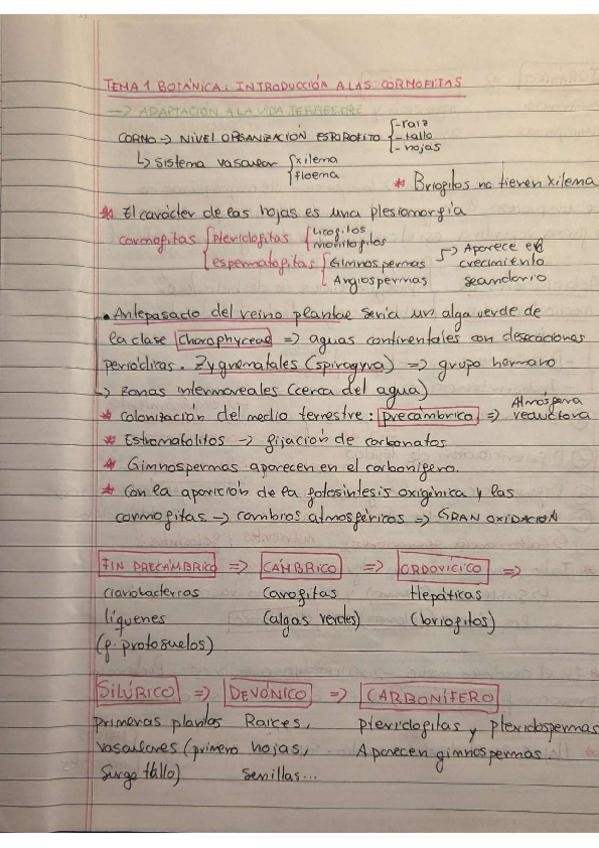 TEMA 1 BOTÁNICA: INTRODUCCIÓN A LAS CORMOFITAS
—> ADAPTACIÓN A LA VIDA TERRESTRE
CORMO —> NIVEL ORGANIZACIÓN ESPOROFITO { - raiz
- tallo
- hojas
↳ sistema vascular { xilema
floema
* Briofitos no tienen xilema
* El carácter de las hojas es una plesiomorfía
cormofitas { pteridofitas { licofitos
monilofitos
espermatofitas { Gimnospermas
Angiospermas
-> Aparece el crecimiento secundario
• Antepasado del reino plantae sería un alga verde de
la clase Charophyceae => aguas continentales con desecaciones
periódicas. Zygnematales (spirogyra) => grupo hermano
↳ zonas intermareales (cerca del agua)
* Colonización del medio terrestre: precámbrico => Atmósfera reductora
* Estromatolitos -> fijación de carbonatos
* Gimnospermas aparecen en el carbonífero.
* Con la aparición de la fotosíntesis oxigénica y las
cormofitas -> cambios atmosféricos => GRAN OXIDACIÓN
FIN PRECÁMBRICO => CÁMBRICO => ORDOVÍCICO =>
cianobacterias carofitas Hepáticas
líquenes (algas verdes) (briofitos)
(f. protosuelos)
SILÚRICO => DEVÓNICO => CARBONÍFERO
primeras plantas Raíces, pteridofitas y pteridospermas
vasculares (primero hojas, Aparecen gimnospermas.
surge tallo) semillas...